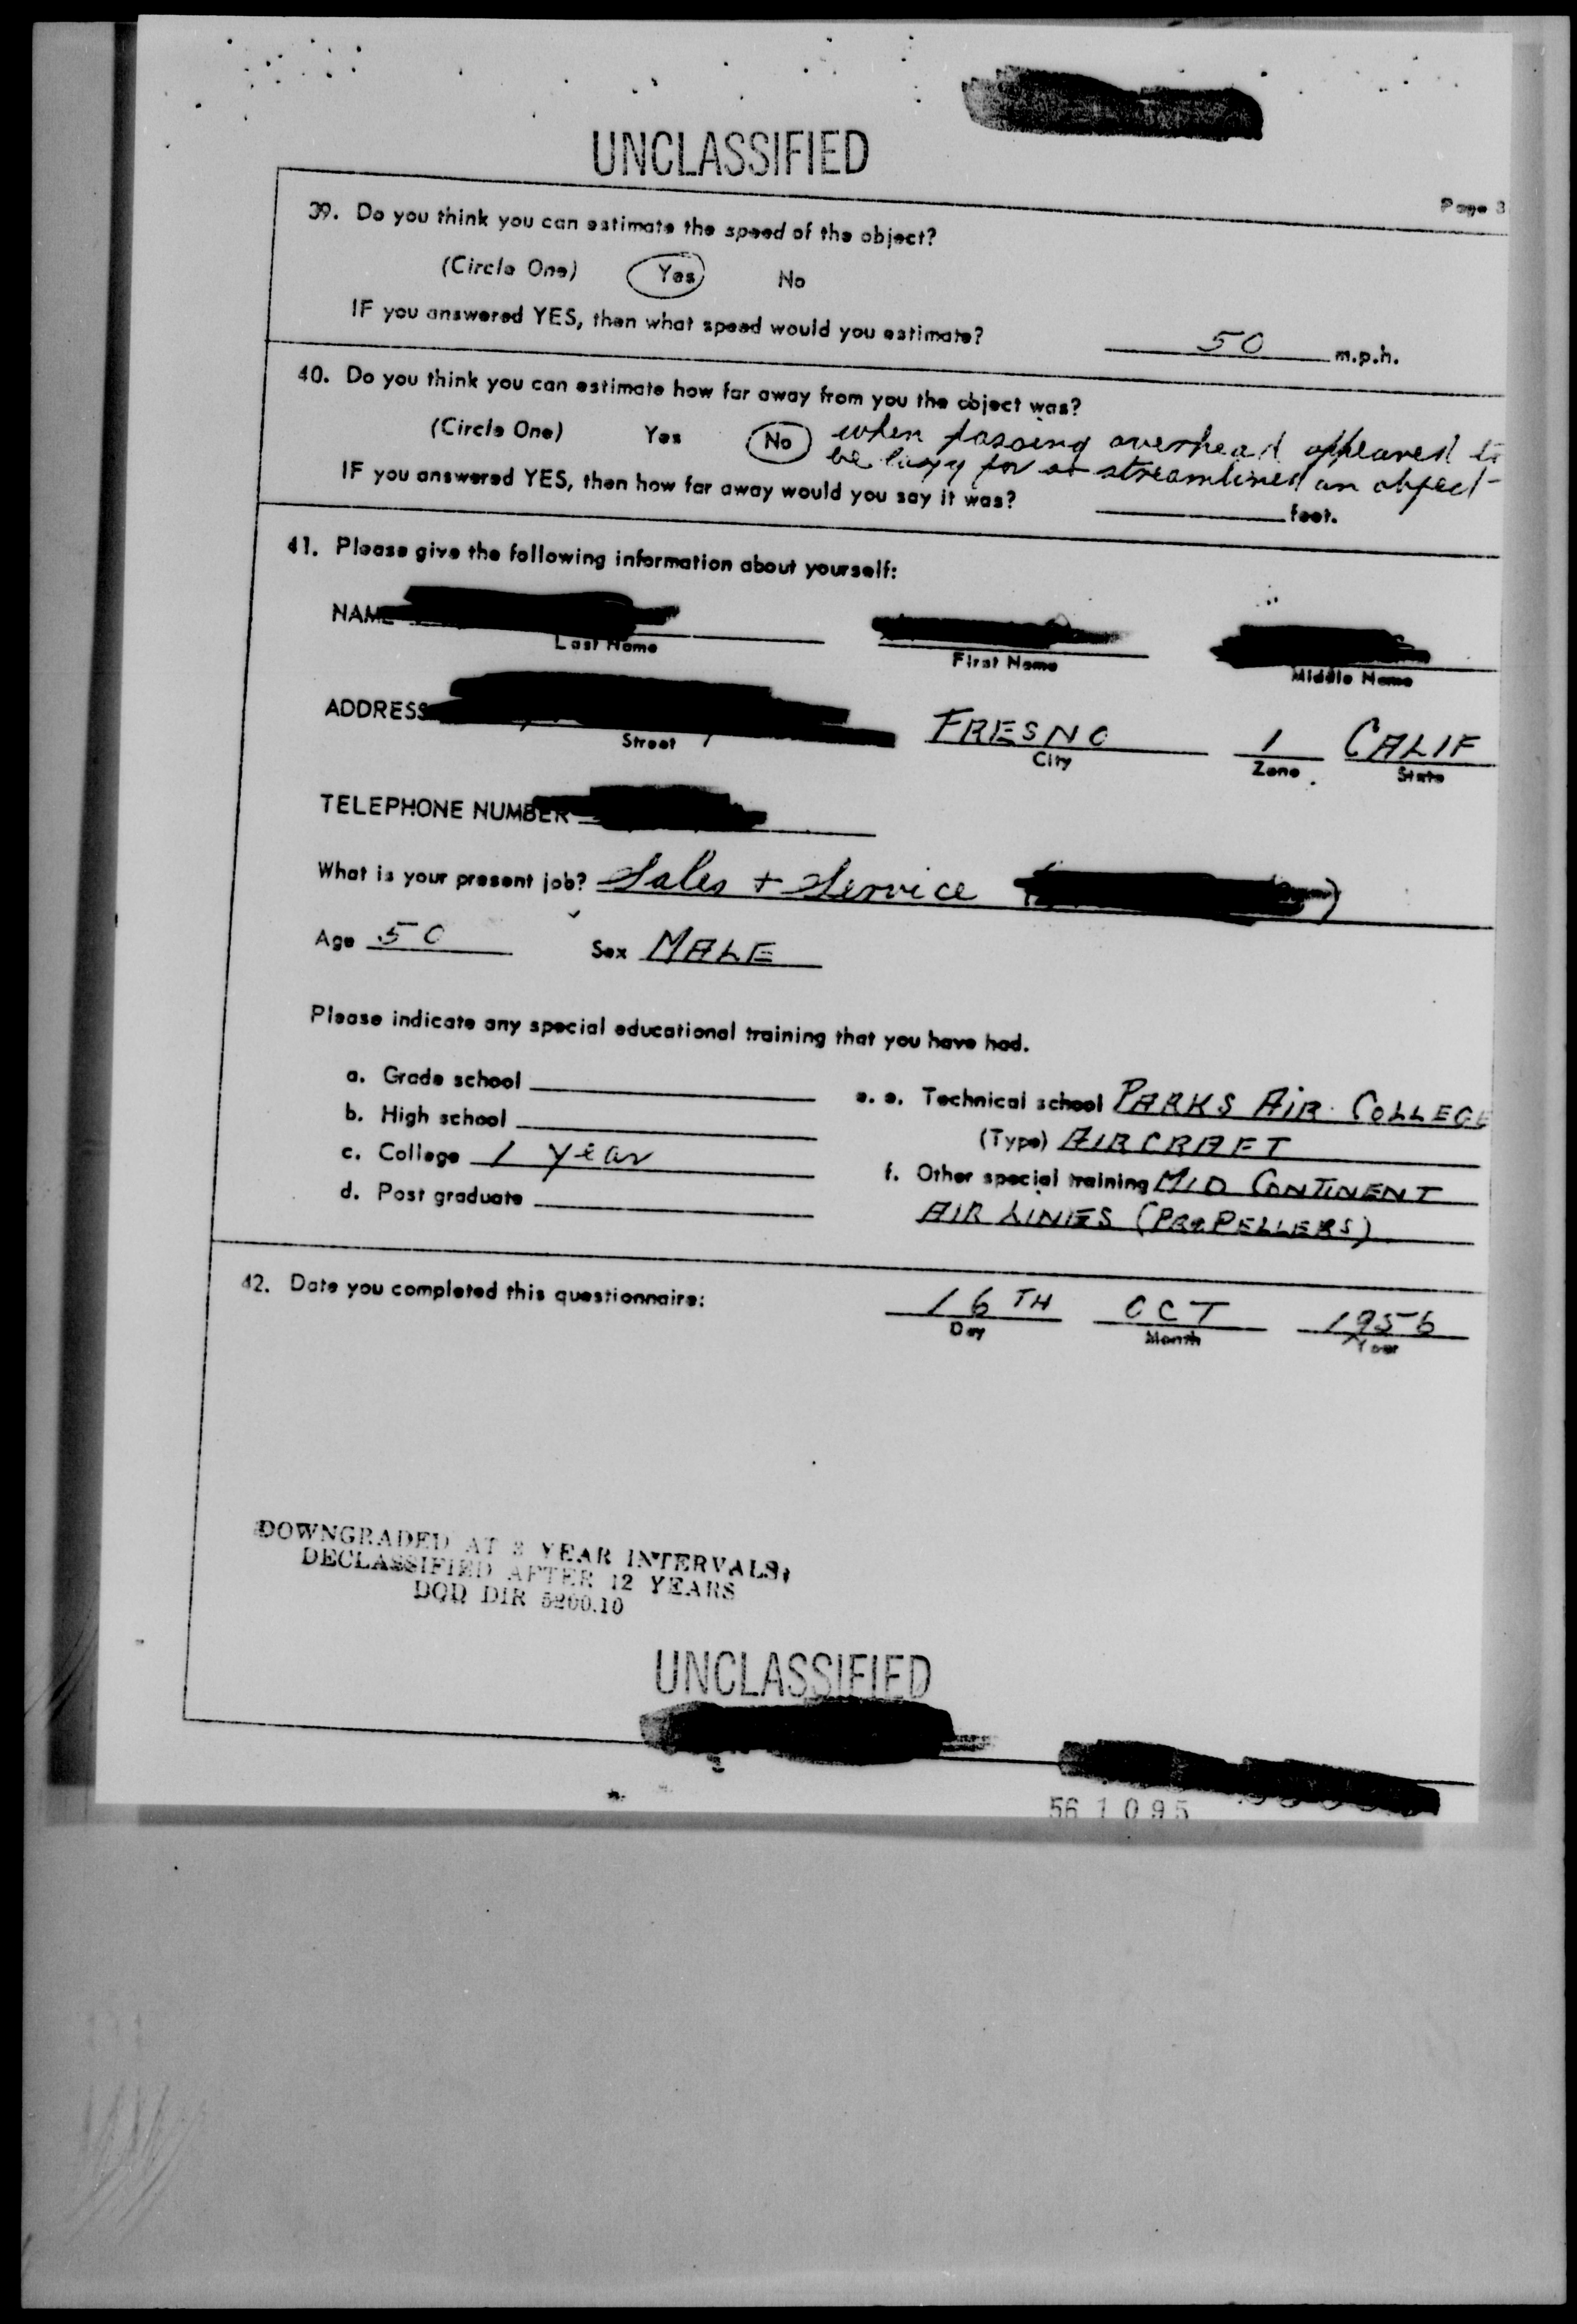 UNCLASSIFIED
Page 8
39. Do you think you can estimate the speed of the object?
(Circle One) Yes No
IF you answered YES, then what speed would you estimate? 50 m.p.h.
40. Do you think you can estimate how far away from you the object was?
(Circle One) Yes No when passing overhead appeared to
be lazy for so streamlined an object-
IF you answered YES, then how far away would you say it was? feet.
41. Please give the following information about yourself:
NAME
Last Name First Name Middle Name
ADDRESS FRESNO 1 CALIF
Street City Zone State
TELEPHONE NUMBER
What is your present job? Sales + Service
Age 50 Sex MALE
Please indicate any special educational training that you have had.
a. Grade school
b. High school
c. College 1 year
d. Post graduate
e. Technical school PARKS AIR COLLEGE
(Type) AIRCRAFT
f. Other special training MID CONTINENT
AIR LINES (PROPELLERS)
42. Date you completed this questionnaire: 16TH OCT 1956
Day Month Year
DOWNGRADED AT 3 YEAR INTERVALS;
DECLASSIFIED AFTER 12 YEARS
DOD DIR 5200.10
UNCLASSIFIED
56 1095